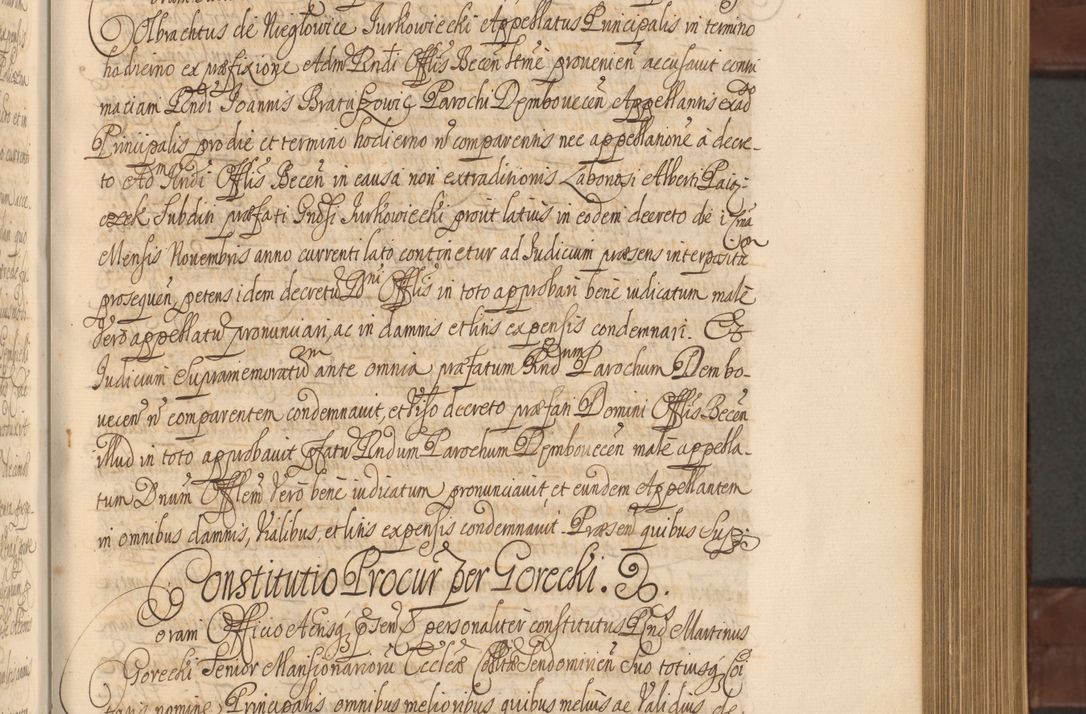 Albrachtus de Nieglowice Jurkowiecki Appellatus Principalis in termino
hodierno ex præfixione Adm Rndi Offlis Becen Stmè provenien accusavit contu
maciam Rndi Joannis Bratuszowic Parochi Dembovecen Appellantis ex ad
Principalis pro die et termino hodierno n comparentis nec appellatione à decre-
to Adm Rndi Offlis Becen in causa non extraditionis Laboriosi Alberti Paię-
czek Subditi præfati Gnosi Jurkowiecki prout latius in eodem decreto die 1ma
Mensis Novembris anno currenti lato continetur ad Judicium præsens interposite
prosequen, petens idem decretu Dni Offlis in toto approbari bene iudicatum male
vero appellatu pronuntiari, ac in damnis et litis expensis condemnari. Et
Judicium Supramemoratu ante omnia præfatum Rndum Parochum Dembo-
vecen n comparentem condemnavit, et viso decreto præfati Domini Offlis Becen
illud in toto approbavit pfatu Rndum Parochum Dembovecen male appella-
tum Dnum Offlem vero bene iudicatum pronunciavit, et eundem Appellantem
in omnibus damnis, vialibus, et litis expensis condemnavit. Præsen quibus Supr
Constitutio Procur per Gorecki.
Coram Officio Actisq psen personaliter constitutus Rnd Martinus
Gorecki Senior Mansionarioru Ecclæ Colltæ Sendomirien Suo totiusq Coi
tatis nomine Principalis omnibus melioribus quibus melius ac validius de-